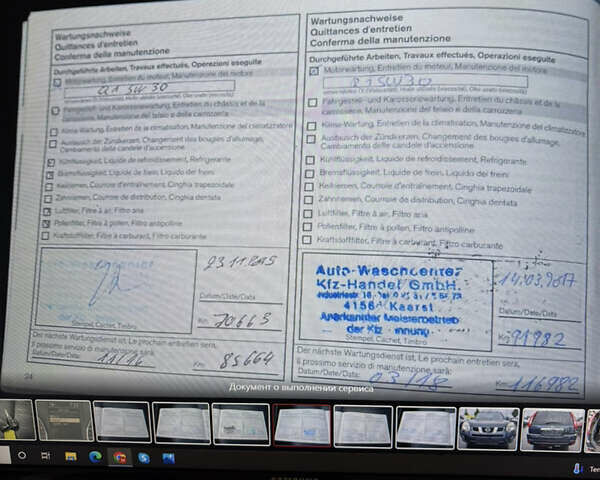 Wartungsnachweise
Quittances d'entretien
Conferma della manutenzione
Durchgeführte Arbeiten, Travaux effectués, Operazioni eseguite
Motorwartung, Entretien du moteur, Manutenzione del motore
5W30
Fahrgestell- und Karosseriewartung, Entretien du châssis et de la
carrosserie, Manutenzione del telaio e della carrozzeria
Klima-Wartung, Entretien de la climatisation, Manutenzione del climatizzatore
Austausch der Zündkerzen, Changement des bougies d'allumage,
Cambiamento delle candele d'accensione
Kühlflüssigkeit, Liquide de refroidissement, Refrigerante
Bremsflüssigkeit, Liquide de frein, Liquido dei freni
Keilriemen, Courroie d'entraînement, Cinghia trapezoidale
Zahnriemen, Courroie de distribution, Cinghia dentata
Luftfilter, Filtre à air, Filtro aria
Pollenfilter, Filtre à pollen, Filtro antipolline
Kraftstofffilter, Filtre à carburant, Filtro carburante
23.11.2015
Datum/Date/Data
Km 70665
Stempel, Cachet, Timbro
Der nächste Wartungsdienst ist, Le prochain entretien sera,
Il prossimo servizio di manutenzione sarà:
Datum/Date/Data: 11/16 Km 85664
24
Wartungsnachweise
Quittances d'entretien
Conferma della manutenzione
Durchgeführte Arbeiten, Travaux effectués, Operazioni eseguite
Motorwartung, Entretien du moteur, Manutenzione del motore
5W30
Fahrgestell- und Karosseriewartung, Entretien du châssis et de la
carrosserie, Manutenzione del telaio e della carrozzeria
Klima-Wartung, Entretien de la climatisation, Manutenzione del climatizzatore
Austausch der Zündkerzen, Changement des bougies d'allumage,
Cambiamento delle candele d'accensione
Kühlflüssigkeit, Liquide de refroidissement, Refrigerante
Bremsflüssigkeit, Liquide de frein, Liquido dei freni
Keilriemen, Courroie d'entraînement, Cinghia trapezoidale
Zahnriemen, Courroie de distribution, Cinghia dentata
Luftfilter, Filtre à air, Filtro aria
Pollenfilter, Filtre à pollen, Filtro antipolline
Kraftstofffilter, Filtre à carburant, Filtro carburante
Auto-Waschcenter
Kfz-Handel GmbH.
41564 Kaarst
Anerkannter Meisterbetrieb
der Kfz Innung
Stempel, Cachet, Timbro
14.03.2017
Datum/Date/Data
Km 91982
Der nächste Wartungsdienst ist, Le prochain entretien sera,
Il prossimo servizio di manutenzione sarà:
Datum/Date/Data: 03/18 Km 116982
Документ о выполнении сервиса